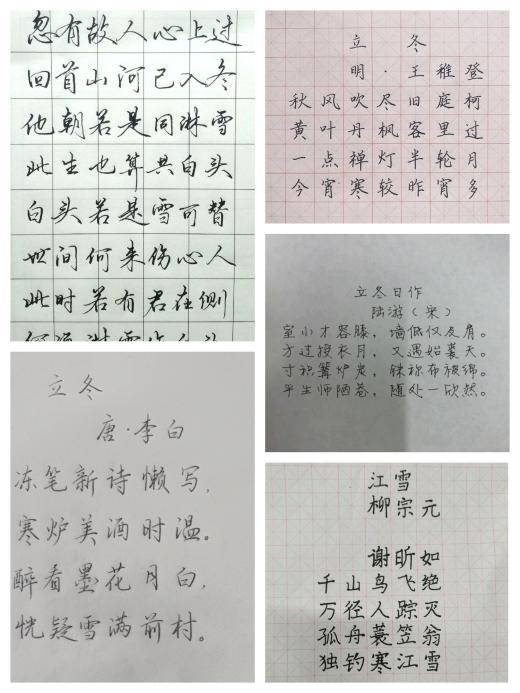 忽有故人心上过
回首山河已入冬
他朝若是同淋雪
此生也算共白头
白头若是雪可替
世间何来伤心人
此时若有君在侧
立冬
明·王稚登
秋风吹尽旧庭柯
黄叶丹枫客里过
一点禅灯半轮月
今宵寒较昨宵多
立冬日作
陆游(宋)
室小才容膝，墙低仅及肩。
方过授衣月，又遇始裘天。
寸积篝炉炭，铢称布被绵。
平生师陋巷，随处一欣然。
立冬
唐·李白
冻笔新诗懒写，
寒炉美酒时温。
醉看墨花月白，
恍疑雪满前村。
江雪
柳宗元
谢昕如
千山鸟飞绝
万径人踪灭
孤舟蓑笠翁
独钓寒江雪